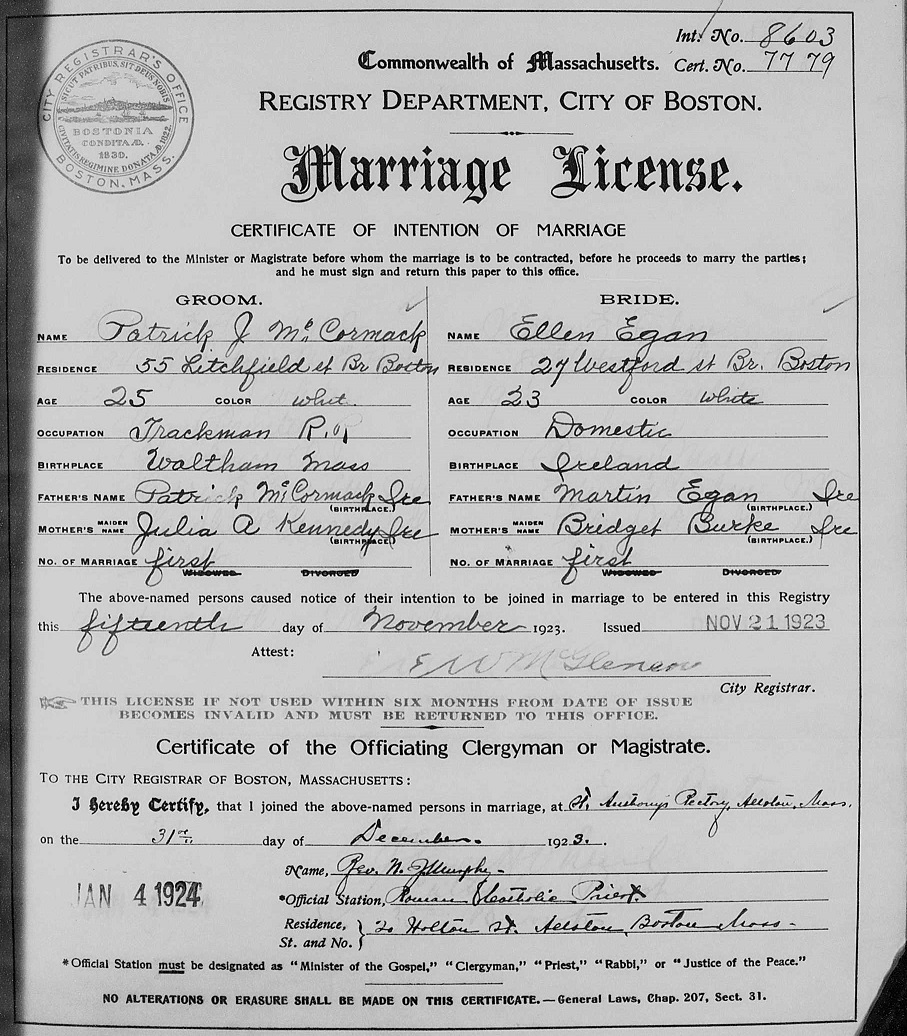 Int. No. 8603
Commonwealth of Massachusetts. Cert. No. 7779
CITY REGISTRAR'S OFFICE
BOSTON, MASS.
SICUT PATRIBUS, SIT DEUS NOBIS
BOSTONIA
CONDITA A.D.
1630.
CIVITATIS REGIMINE DONATA A.D. 1822.
REGISTRY DEPARTMENT, CITY OF BOSTON.
Marriage License.
CERTIFICATE OF INTENTION OF MARRIAGE
To be delivered to the Minister or Magistrate before whom the marriage is to be contracted, before he proceeds to marry the parties;
and he must sign and return this paper to this office.
GROOM. BRIDE.
NAME Patrick J McCormack NAME Ellen Egan
RESIDENCE 55 Litchfield st Br Boston RESIDENCE 27 Westford st Br. Boston
AGE 25 COLOR whit. AGE 23 COLOR White
OCCUPATION Trackman R.R OCCUPATION Domestic
BIRTHPLACE Waltham Mass BIRTHPLACE Ireland
FATHER'S NAME Patrick McCormack Ire (BIRTHPLACE.) FATHER'S NAME Martin Egan Ire (BIRTHPLACE.)
MOTHER'S MAIDEN NAME Julia A Kennedy Ire (BIRTHPLACE.) MOTHER'S MAIDEN NAME Bridget Burke Ire (BIRTHPLACE.)
NO. OF MARRIAGE first WIDOWED DIVORCED NO. OF MARRIAGE first WIDOWED DIVORCED
The above-named persons caused notice of their intention to be joined in marriage to be entered in this Registry
this fifteenth day of November 1923. Issued NOV 21 1923
Attest: E W McGlenen
City Registrar.
THIS LICENSE IF NOT USED WITHIN SIX MONTHS FROM DATE OF ISSUE
BECOMES INVALID AND MUST BE RETURNED TO THIS OFFICE.
Certificate of the Officiating Clergyman or Magistrate.
TO THE CITY REGISTRAR OF BOSTON, MASSACHUSETTS:
I Hereby Certify, that I joined the above-named persons in marriage, at St. Anthony's Rectory, Allston, Mass.
on the 31st day of December. 1923.
Name, Rev. N. J. Murphy.
JAN 4 1924
*Official Station, Roman Catholic Priest
Residence, St. and No. } 20 Holton St. Allston, Boston Mass.
*Official Station must be designated as "Minister of the Gospel," "Clergyman," "Priest," "Rabbi," or "Justice of the Peace."
NO ALTERATIONS OR ERASURE SHALL BE MADE ON THIS CERTIFICATE.—General Laws, Chap. 207, Sect. 31.